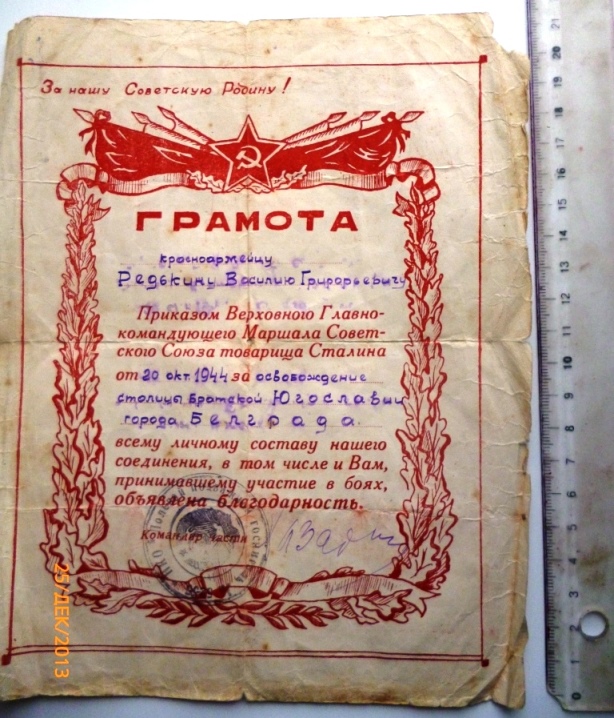 За нашу Советскую Родину!
ГРАМОТА
красноармейцу
Редькину Василию Григорьевичу
Приказом Верховного Главно-
командующего Маршала Совет-
ского Союза товарища Сталина
от 20 окт. 1944 за освобождение
столицы братской Югославии
города Белграда.
всему личному составу нашего
соединения, в том числе и Вам,
принимавшему участие в боях,
объявлена благодарность.
Командир части
НКО
25/ДЕК/2013
0 1 2 3 4 5 6 7 8 9 10 11 12 13 14 15 16 17 18 19 20 21